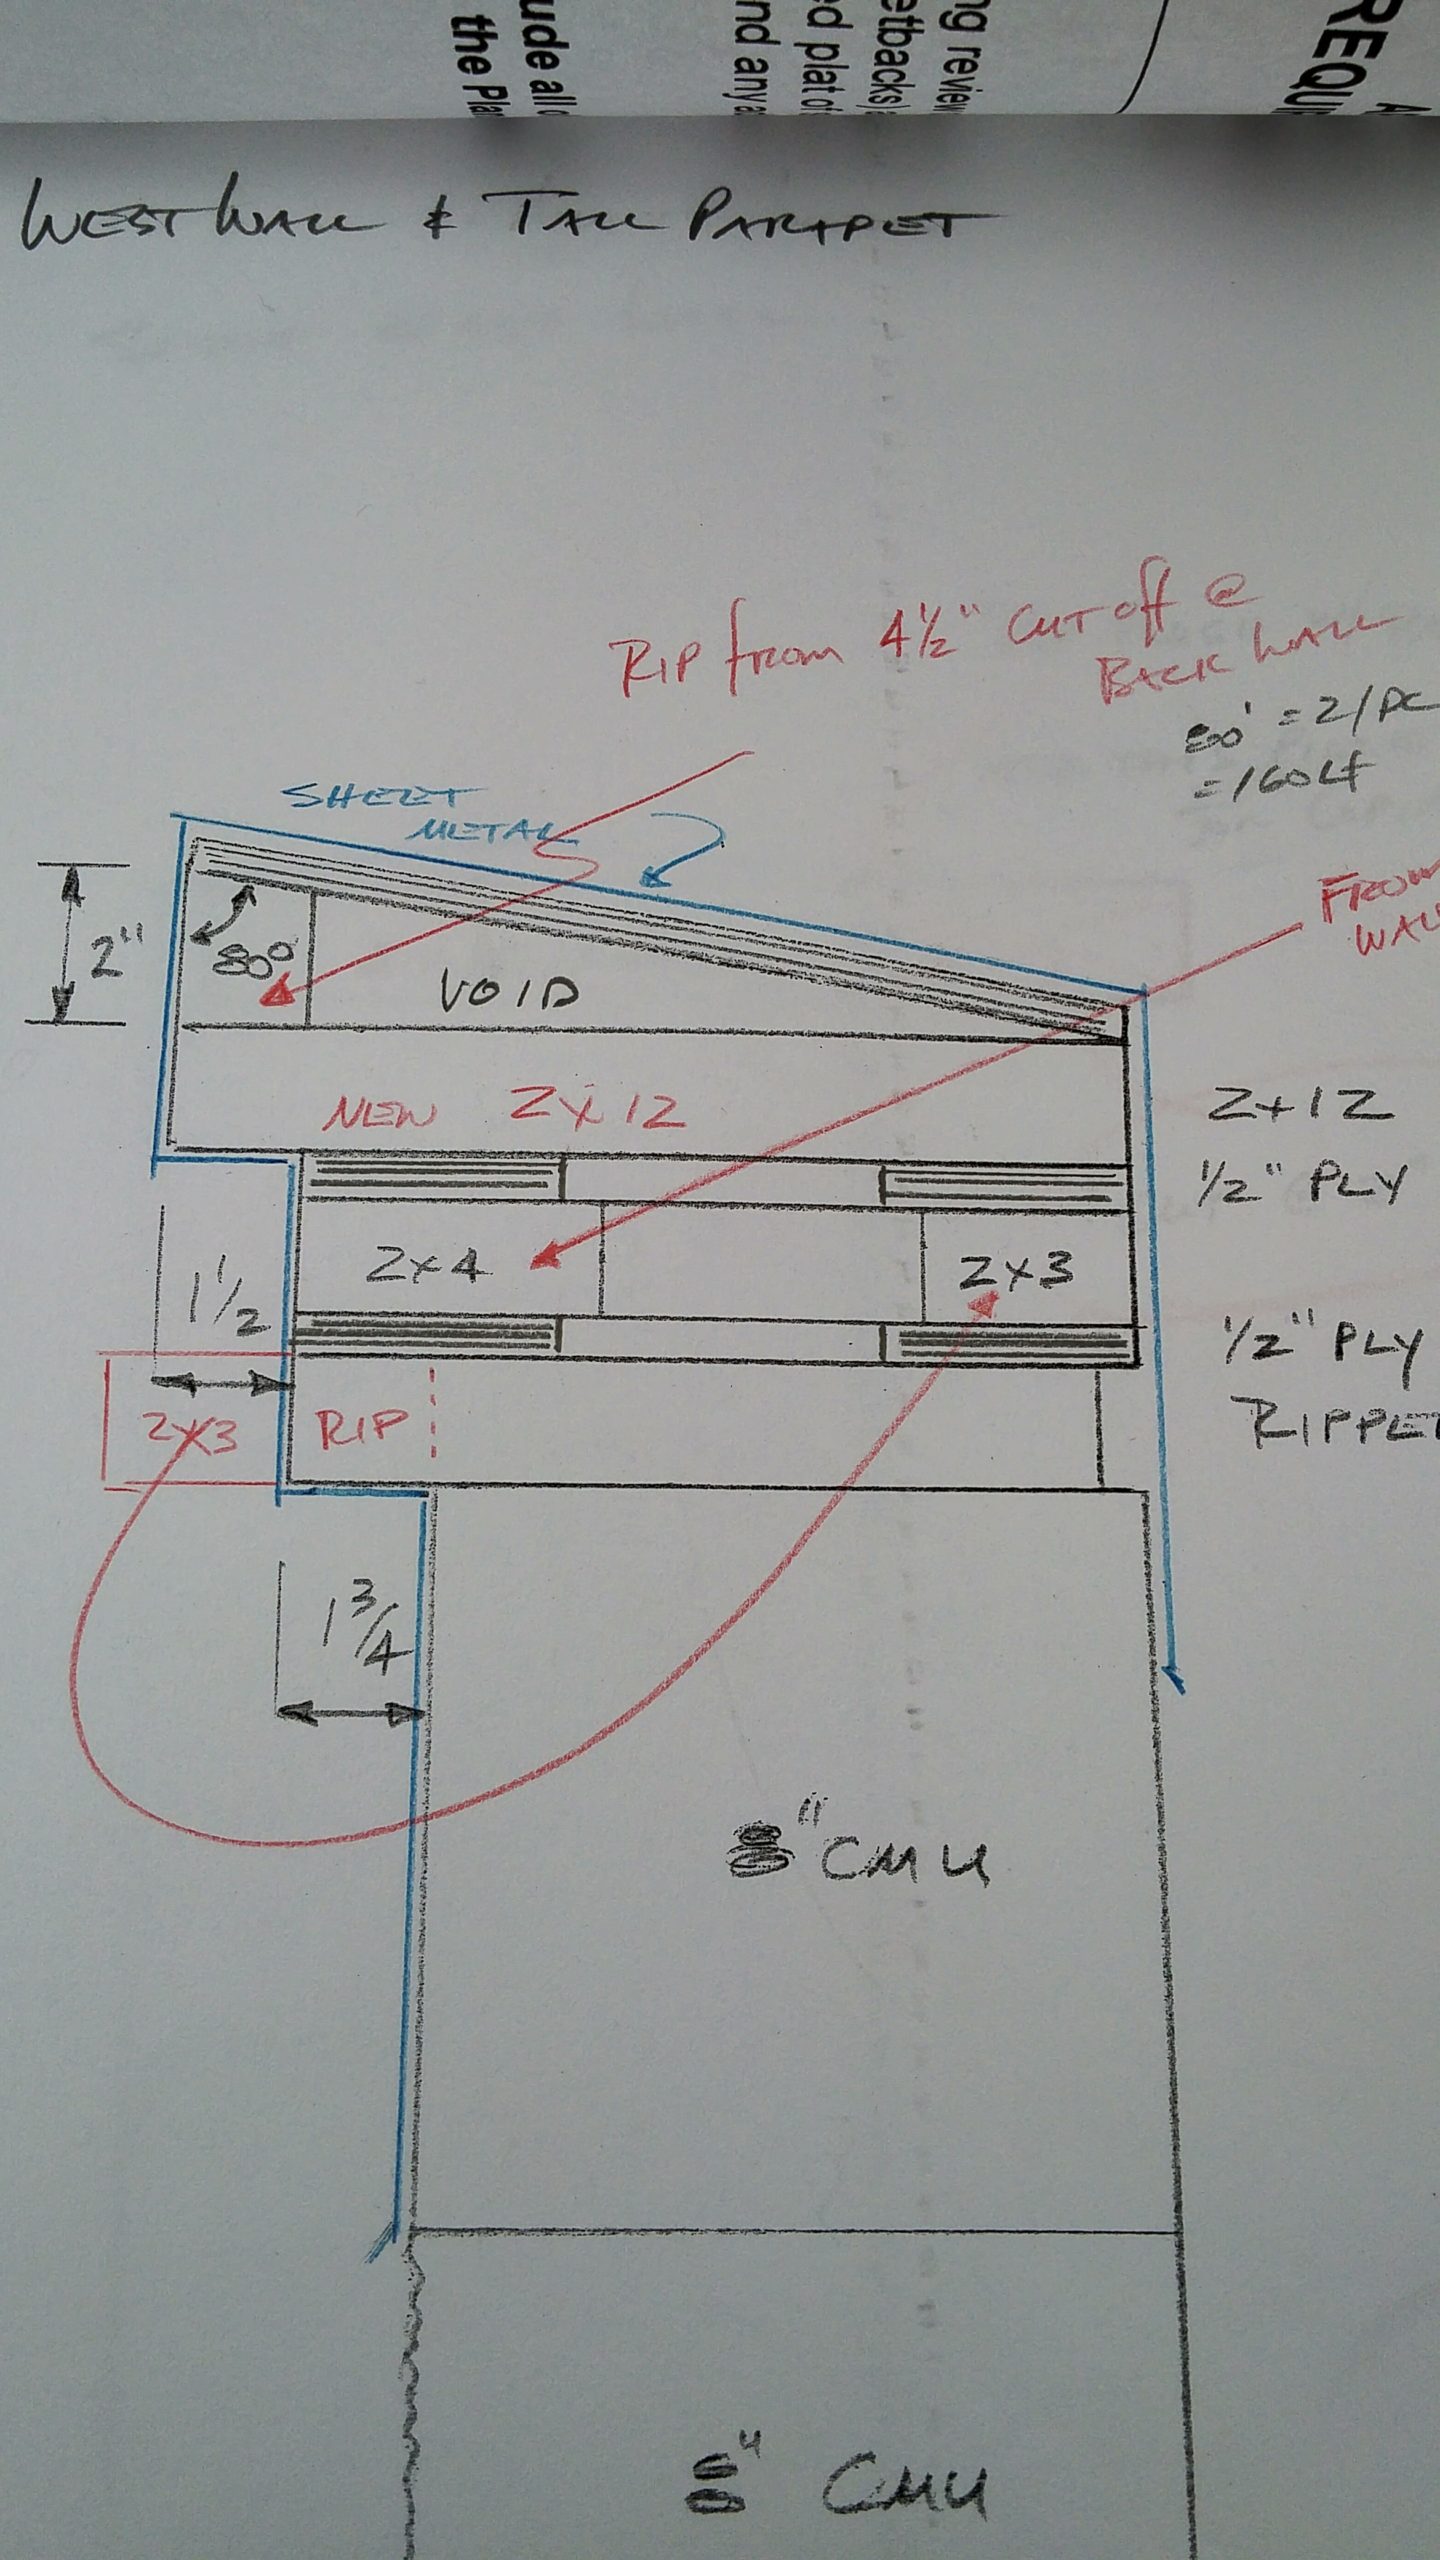 ng review
etbacks)
ed plat of
nd any a
ude all
the Pla
REQUI
WEST WALL & TALL PARAPET
RIP from 4 1/2" CUT off @
BACK WALL
80' = 2/PC
= 160 Lf
SHEET
METAL
FROM
WAL
2"
80°
VOID
NEW 2x12
2x12
1/2" PLY
1 1/2
2x4
2x3
1/2" PLY
2x3
RIP
RIPPED
1 3/4
8" CMU
8" CMU